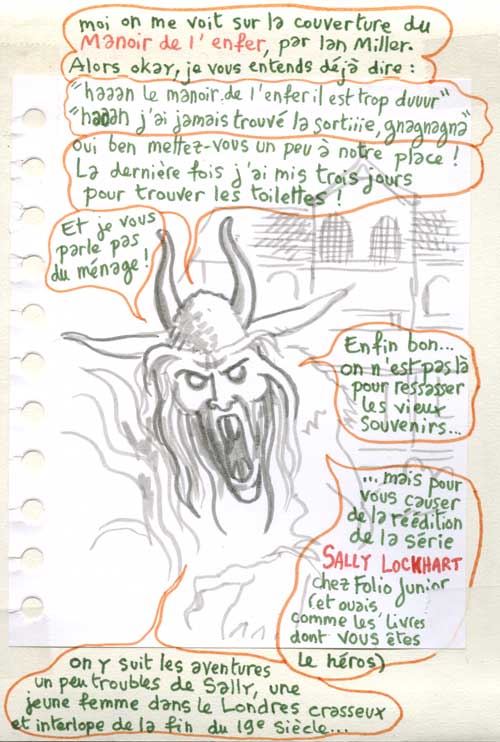 moi on me voit sur la couverture du
Manoir de l'enfer, par Ian Miller.
Alors okay, je vous entends déjà dire :
"haaan le manoir de l'enfer il est trop duuur"
"haaah j'ai jamais trouvé la sortiiie, gnagnagna"
oui ben mettez-vous un peu à notre place !
La dernière fois j'ai mis trois jours
pour trouver les toilettes !
Et je vous
parle pas
du ménage !
Enfin bon...
on n'est pas là
pour ressasser
les vieux
souvenirs...
...mais pour
vous causer
de la réédition
de la série
SALLY LOCKHART
chez Folio Junior
(et ouais
comme les livres
dont vous êtes
le héros)
on y suit les aventures
un peu troubles de Sally, une
jeune femme dans le Londres crasseux
et interlope de la fin du 19e Siècle...